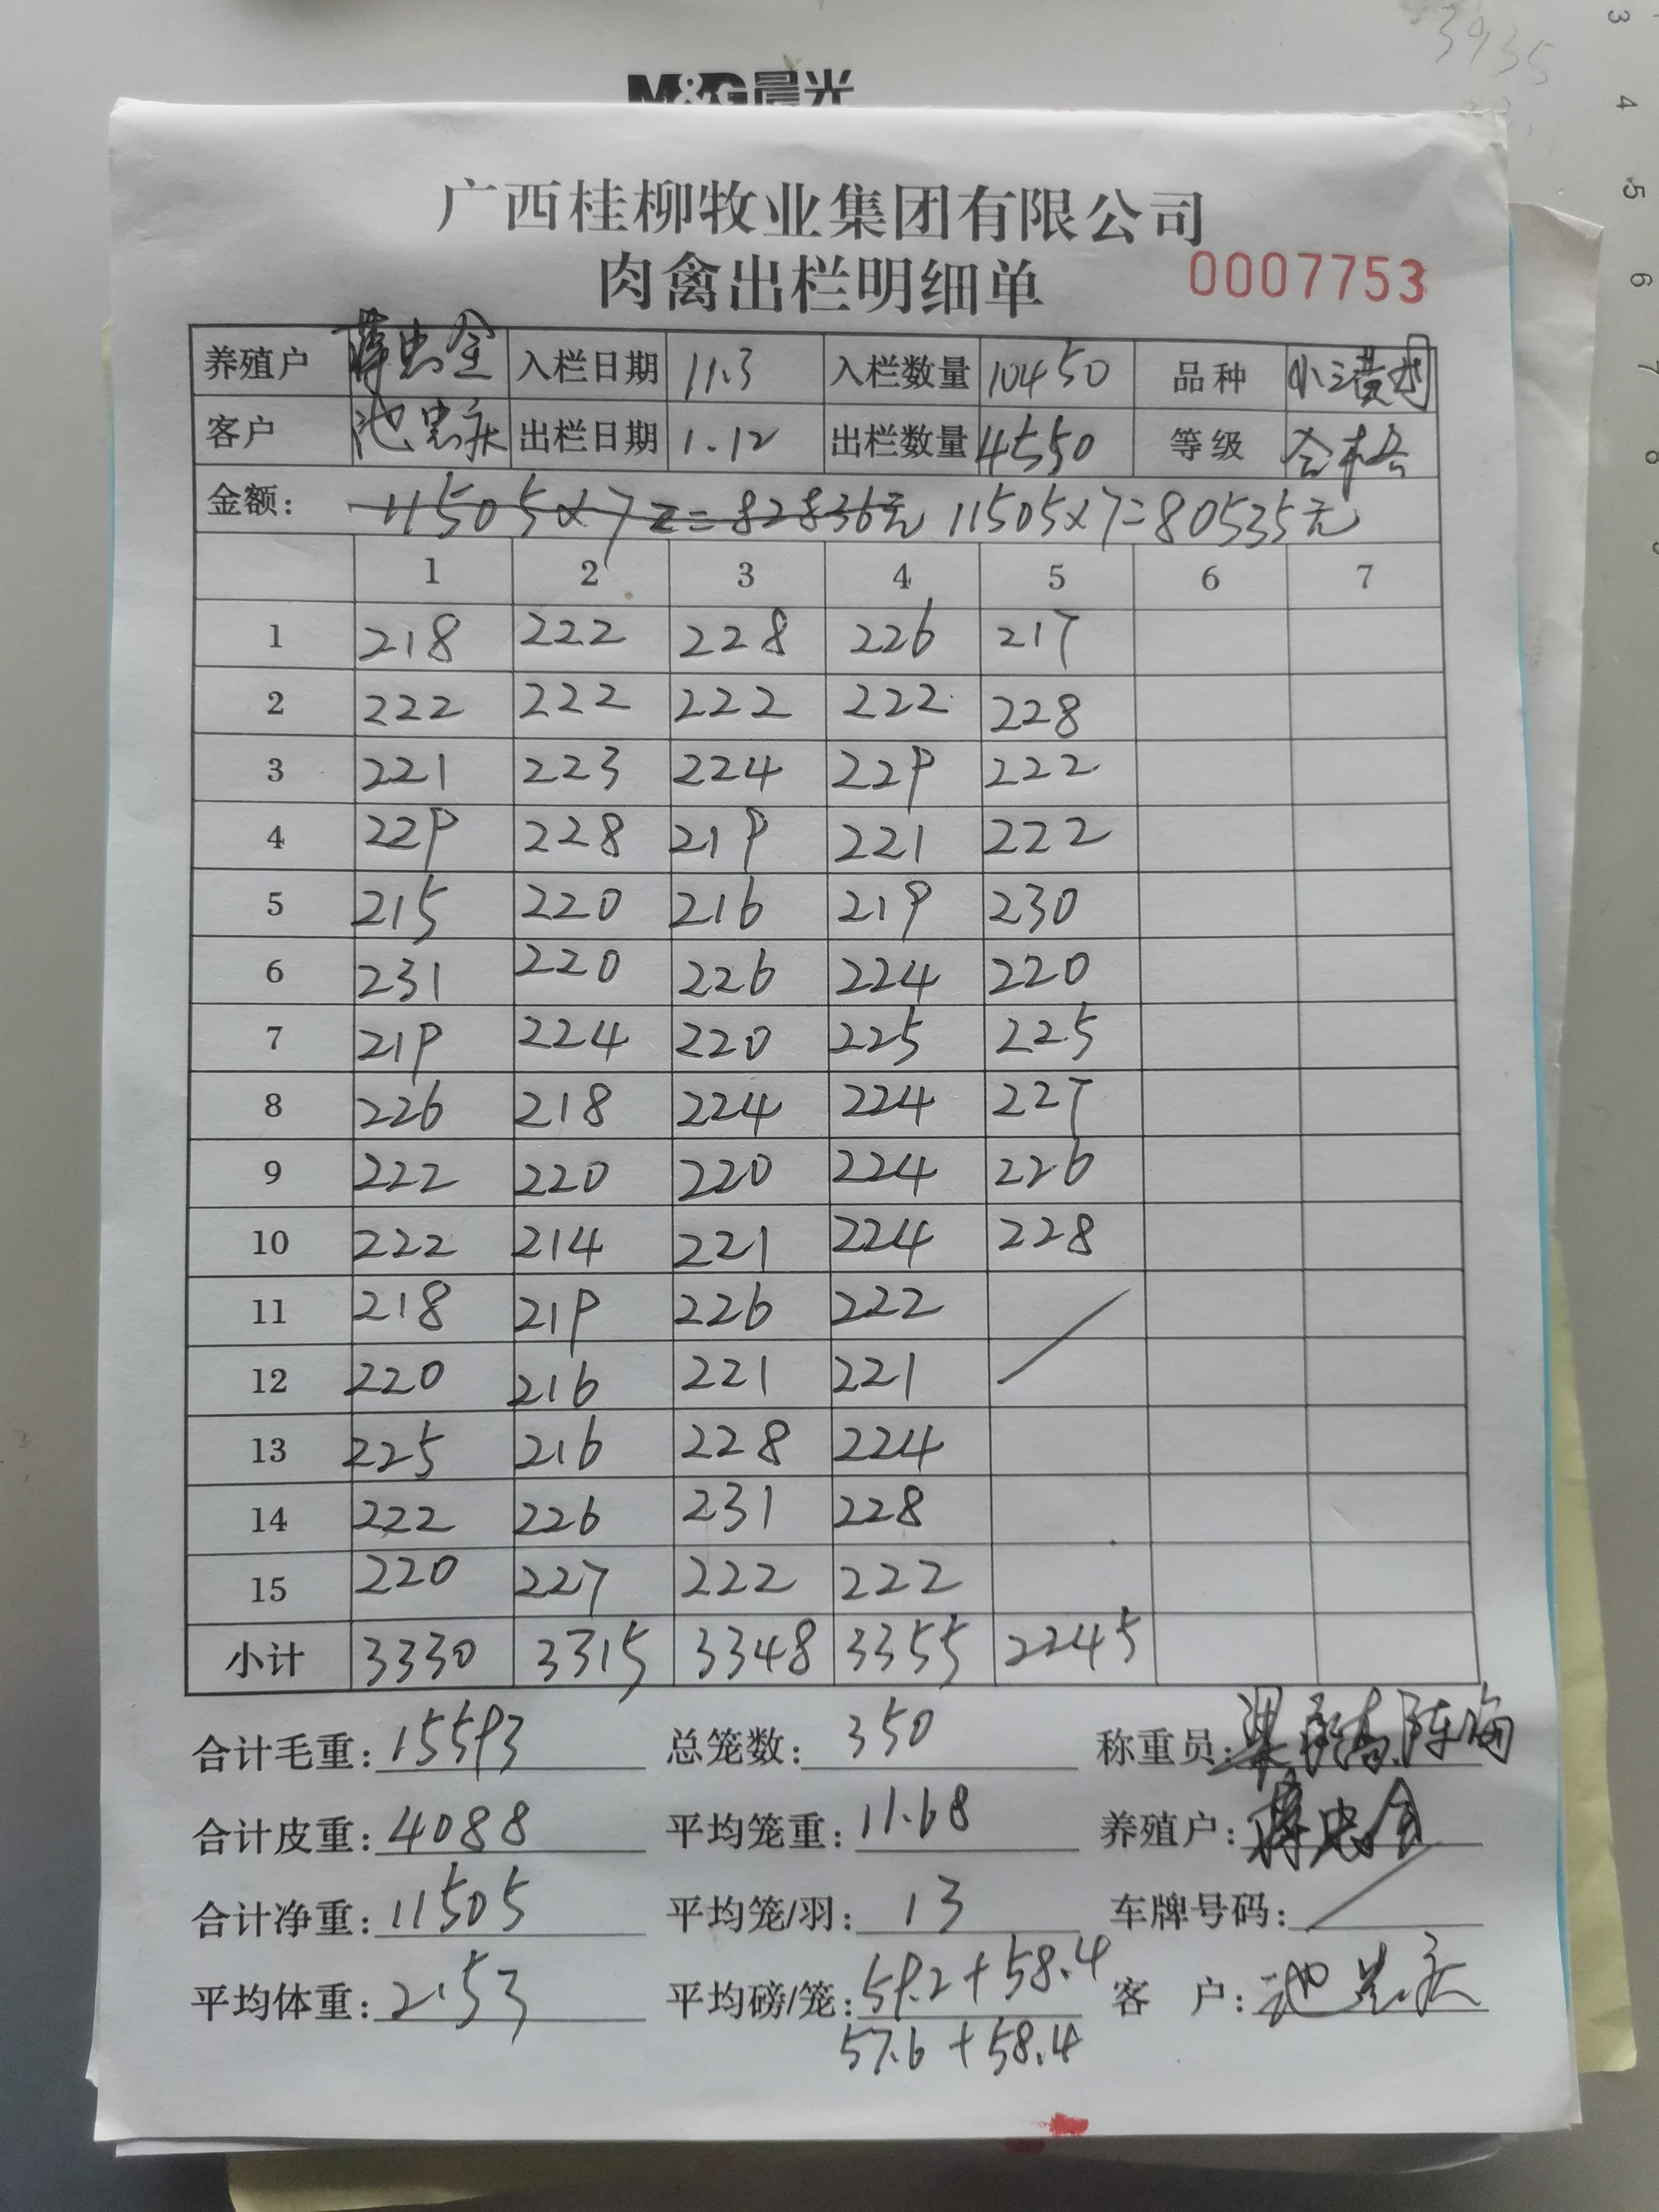 3935
M&G晨光
广西桂柳牧业集团有限公司
肉禽出栏明细单 0007753
养殖户 蒋忠金 入栏日期 11.3 入栏数量 10450 品种 小三黄
客户 池忠庆 出栏日期 1.12 出栏数量 4550 等级 合格
金额: 11505×7.2=82836元 11505×7=80535元
1 2 3 4 5 6 7
1 218 222 228 226 217
2 222 222 222 222 228
3 221 223 224 229 222
4 229 228 219 221 222
5 215 220 216 219 230
6 231 220 226 224 220
7 219 224 220 225 225
8 226 218 224 224 227
9 222 220 220 224 226
10 222 214 221 224 228
11 218 219 226 222
12 220 216 221 221
13 225 216 228 224
14 222 226 231 228
15 220 227 222 222
小计 3330 3315 3348 3355 2245
合计毛重: 15593 总笼数: 350 称重员:
合计皮重: 4088 平均笼重: 11.68 养殖户: 蒋忠金
合计净重: 11505 平均笼/羽: 13 车牌号码: /
平均体重: 2.53 平均磅/笼: 59.2+58.4 客 户: 池忠庆
57.6+58.4